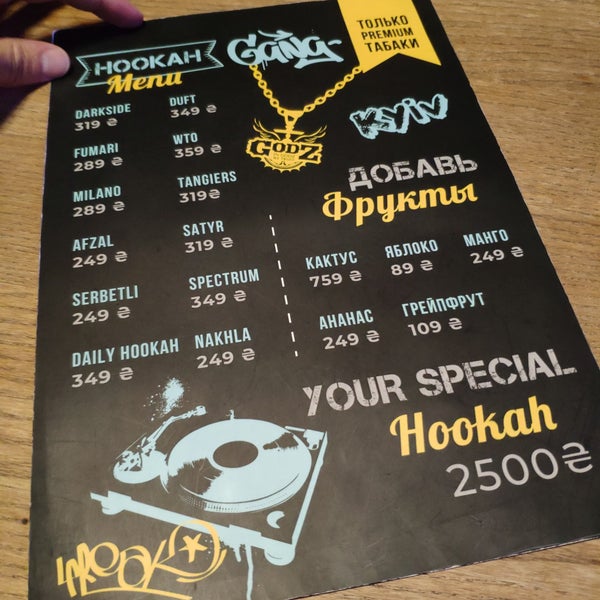 HOOKAH
Menu
GANG
ТОЛЬКО
PREMIUM
ТАБАКИ
GODZ
KYIV
DARKSIDE
319 ₴
DUFT
349 ₴
FUMARI
289 ₴
WTO
359 ₴
MILANO
289 ₴
TANGIERS
319₴
AFZAL
249 ₴
SATYR
319 ₴
SERBETLI
249 ₴
SPECTRUM
349 ₴
DAILY HOOKAH
349 ₴
NAKHLA
249 ₴
ДОБАВЬ
Фрукты
КАКТУС
759 ₴
ЯБЛОКО
89 ₴
МАНГО
249 ₴
АНАНАС
249 ₴
ГРЕЙПФРУТ
109 ₴
YOUR SPECIAL
Hookah
2500₴